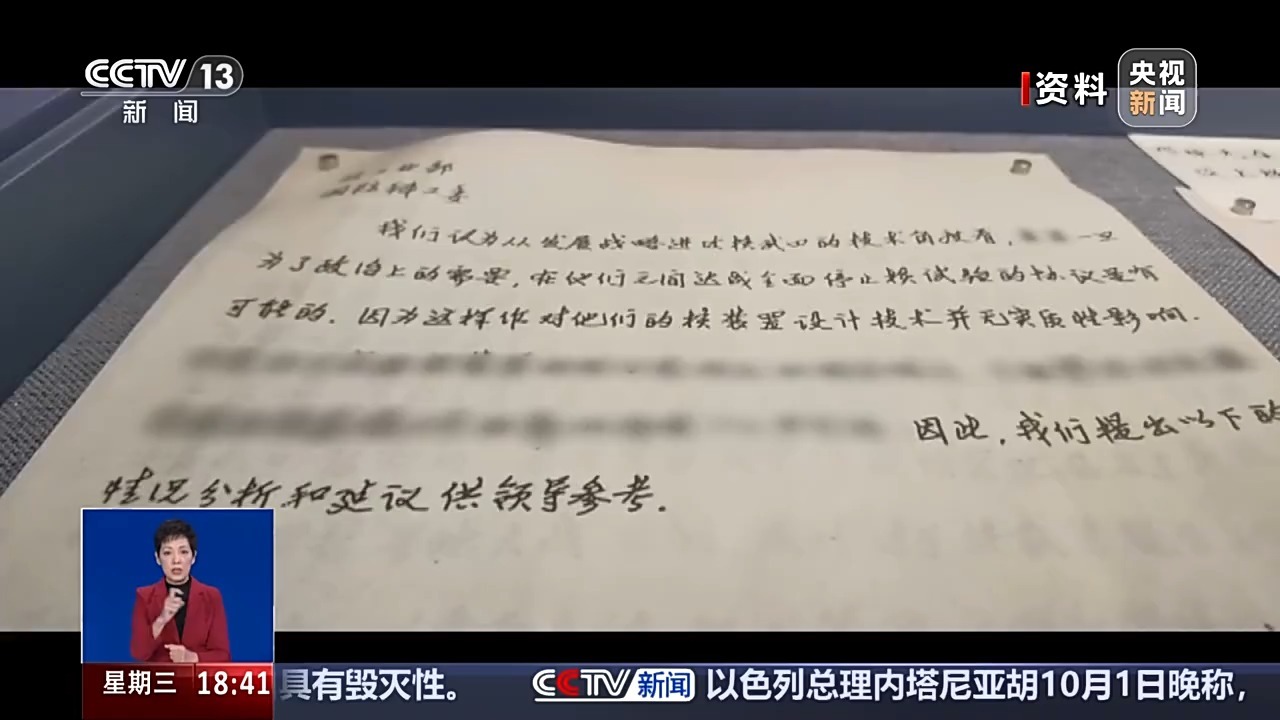 CCTV 13
新闻
资料
央视
新闻
工业部
国防科工委
我们认为从发展战略进攻核武
的技术角度看,
一旦
为了政治上的需要,在他们之间达成全面停止核试验的协议是有
可能的.因为这样作对他们的核装置设计技术并无实质性影响.
因此,我们提出以下的
情况分析和建议供领导参考.
星期三 18:41 具有毁灭性。 CCTV新闻 以色列总理内塔尼亚胡10月1日晚称,